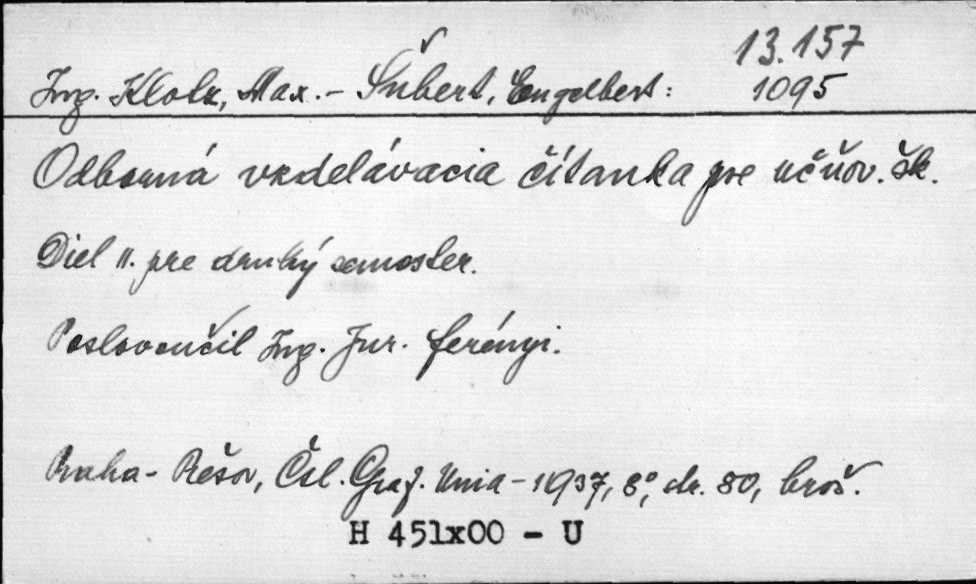 13.157
Ing. Klotz, Max. - Šubert, Engelbert: 1095
Odborná vzdelávacia čítanka pre učňov. šk.
Diel II. pre druhý semester.
Poslovenčil Ing. Jur. Ferényi.
Praha - Prešov, Čsl. Graf. Unia - 1937, 8°, str. 80, broš.
H 451x00 - U